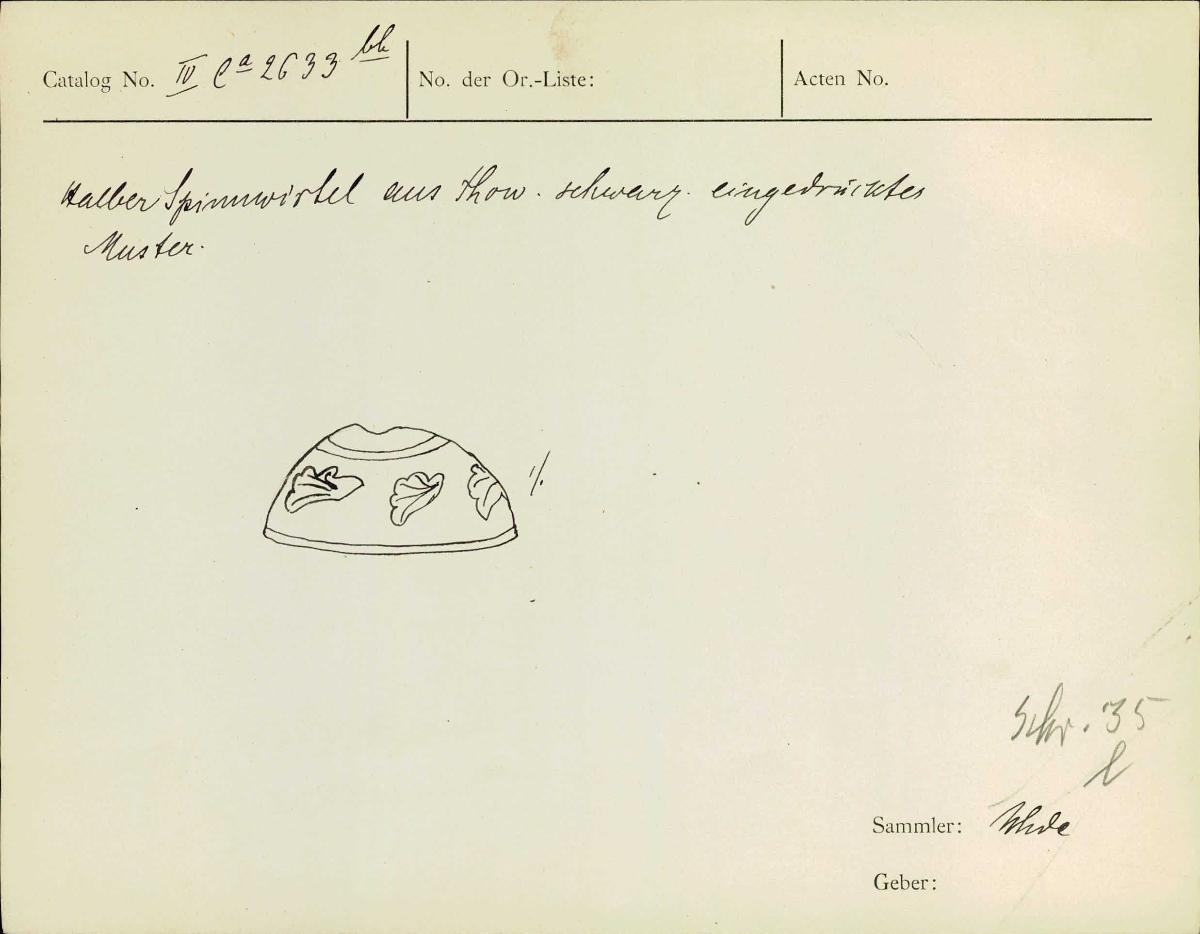 Catalog No. IV Ca 2633 bk No. der Or.-Liste: Acten No.
Halber Spinnwirtel aus Thon. schwarz. eingedrücktes
Muster.
1/1
Schr. 35
l
Sammler: Uhde
Geber: